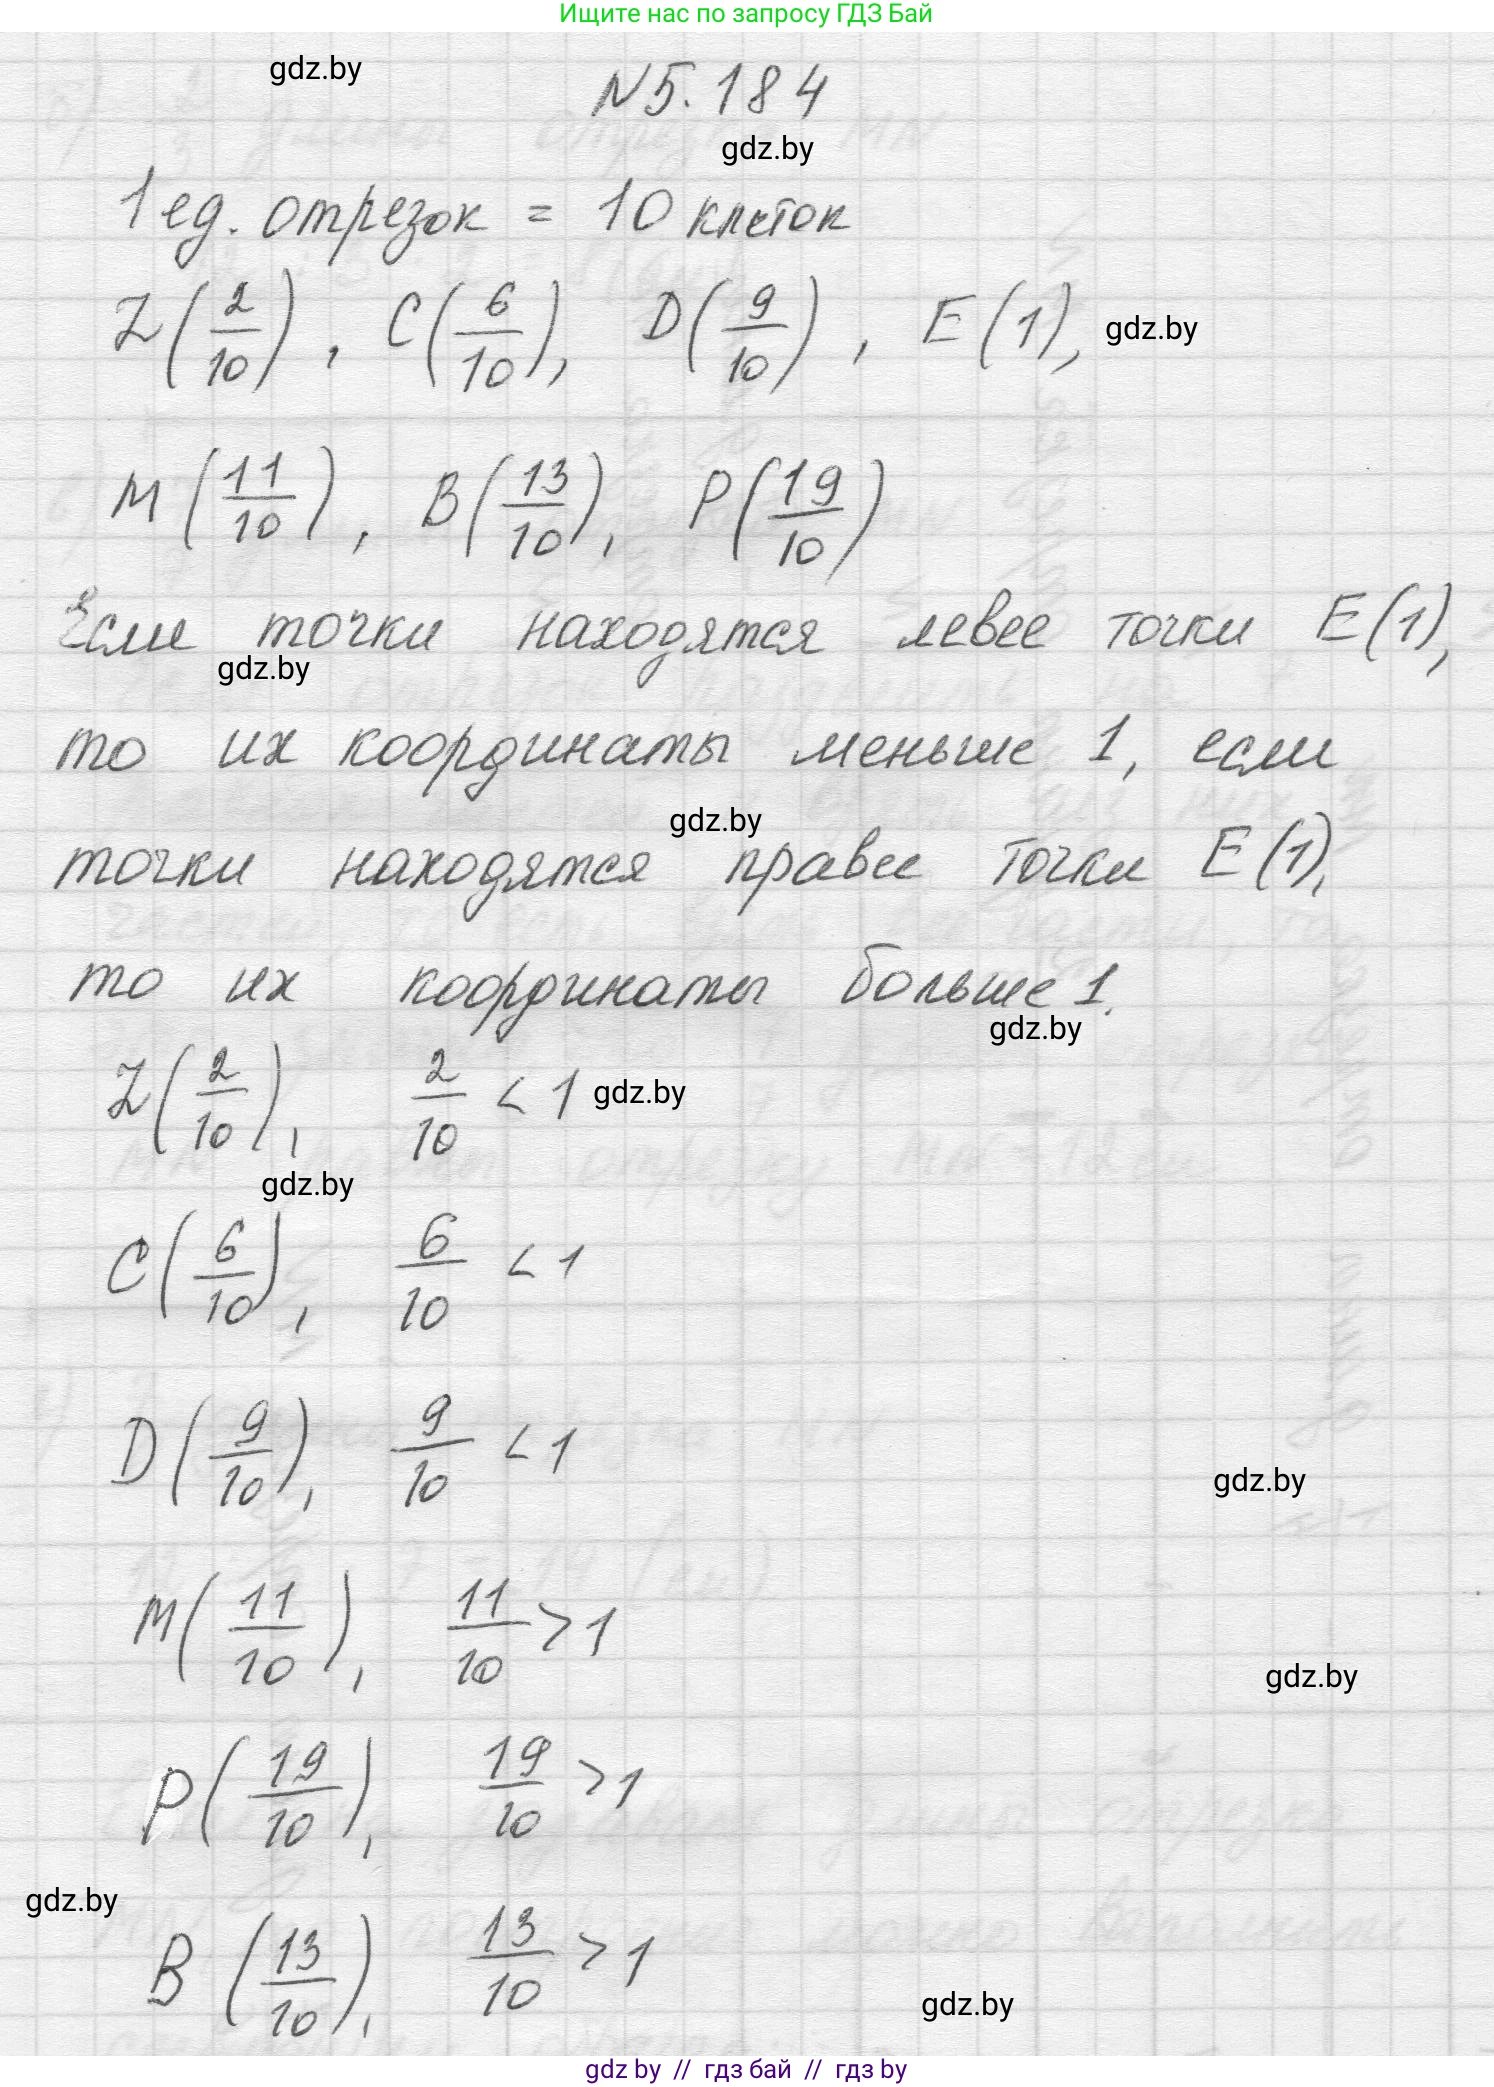 Ищите нас по запросу ГДЗ Бай
gdz.by
N5.184
gdz.by
1 ед. отрезок = 10 клеток
Z(2/10), C(6/10), D(9/10), E(1),
gdz.by
M(11/10), B(13/10), P(19/10)
Если точки находятся левее точки E(1),
gdz.by
то их координаты меньше 1, если
gdz.by
точки находятся правее точки E(1),
то их координаты больше 1.
gdz.by
Z(2/10), 2/10 < 1
gdz.by
gdz.by
C(6/10), 6/10 < 1
D(9/10), 9/10 < 1
gdz.by
M(11/10), 11/10 > 1
gdz.by
P(19/10), 19/10 > 1
gdz.by
B(13/10), 13/10 > 1
gdz.by
gdz by // гдз бай // гдз by